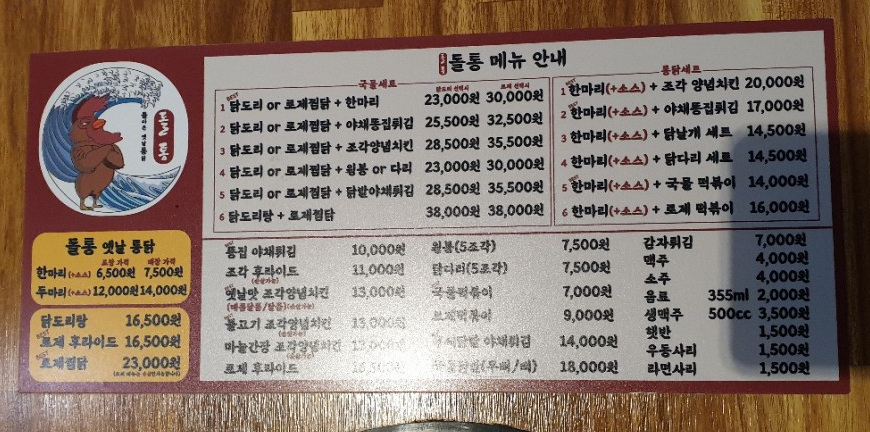 돌통
돌아온 옛날통닭
돌통 메뉴 안내
돌통 옛날 통닭
포장 가격 매장 가격
한마리(+소스) 6,500원 7,500원
두마리(+소스) 12,000원 14,000원
닭도리탕 16,500원
로제 후라이드 16,500원
로제찜닭 23,000원
국물세트
닭도리 선택시 로제 선택시
1 BEST 닭도리 or 로제찜닭 + 한마리 23,000원 30,000원
2 닭도리 or 로제찜닭 + 야채통집튀김 25,500원 32,500원
3 닭도리 or 로제찜닭 + 조각양념치킨 28,500원 35,500원
4 닭도리 or 로제찜닭 + 윙봉 or 다리 23,000원 30,000원
5 닭도리 or 로제찜닭 + 닭발야채튀김 28,500원 35,500원
6 닭도리탕 + 로제찜닭 38,000원 38,000원
통닭세트
1 BEST 한마리(+소스) + 조각 양념치킨 20,000원
2 BEST 한마리(+소스) + 야채통집튀김 17,000원
3 한마리(+소스) + 닭날개 세트 14,500원
4 한마리(+소스) + 닭다리 세트 14,500원
5 BEST 한마리(+소스) + 국물 떡볶이 14,000원
6 한마리(+소스) + 로제 떡볶이 16,000원
통집 야채튀김 10,000원
조각 후라이드 11,000원
(순살가능)
옛날맛 조각양념치킨 13,000원
(매콤달콤/달콤)(순살가능)
불고기 조각양념치킨 13,000원
(순살가능)
마늘간장 조각양념치킨 13,000원
(순살가능)
로제 후라이드
윙봉(5조각) 7,500원
닭다리(5조각) 7,500원
국물떡볶이 7,000원
로제떡볶이 9,000원
야채튀김 14,000원
18,000원
감자튀김 7,000원
맥주 4,000원
소주 4,000원
음료 355ml 2,000원
생맥주 500cc 3,500원
햇반 1,500원
우동사리 1,500원
라면사리 1,500원